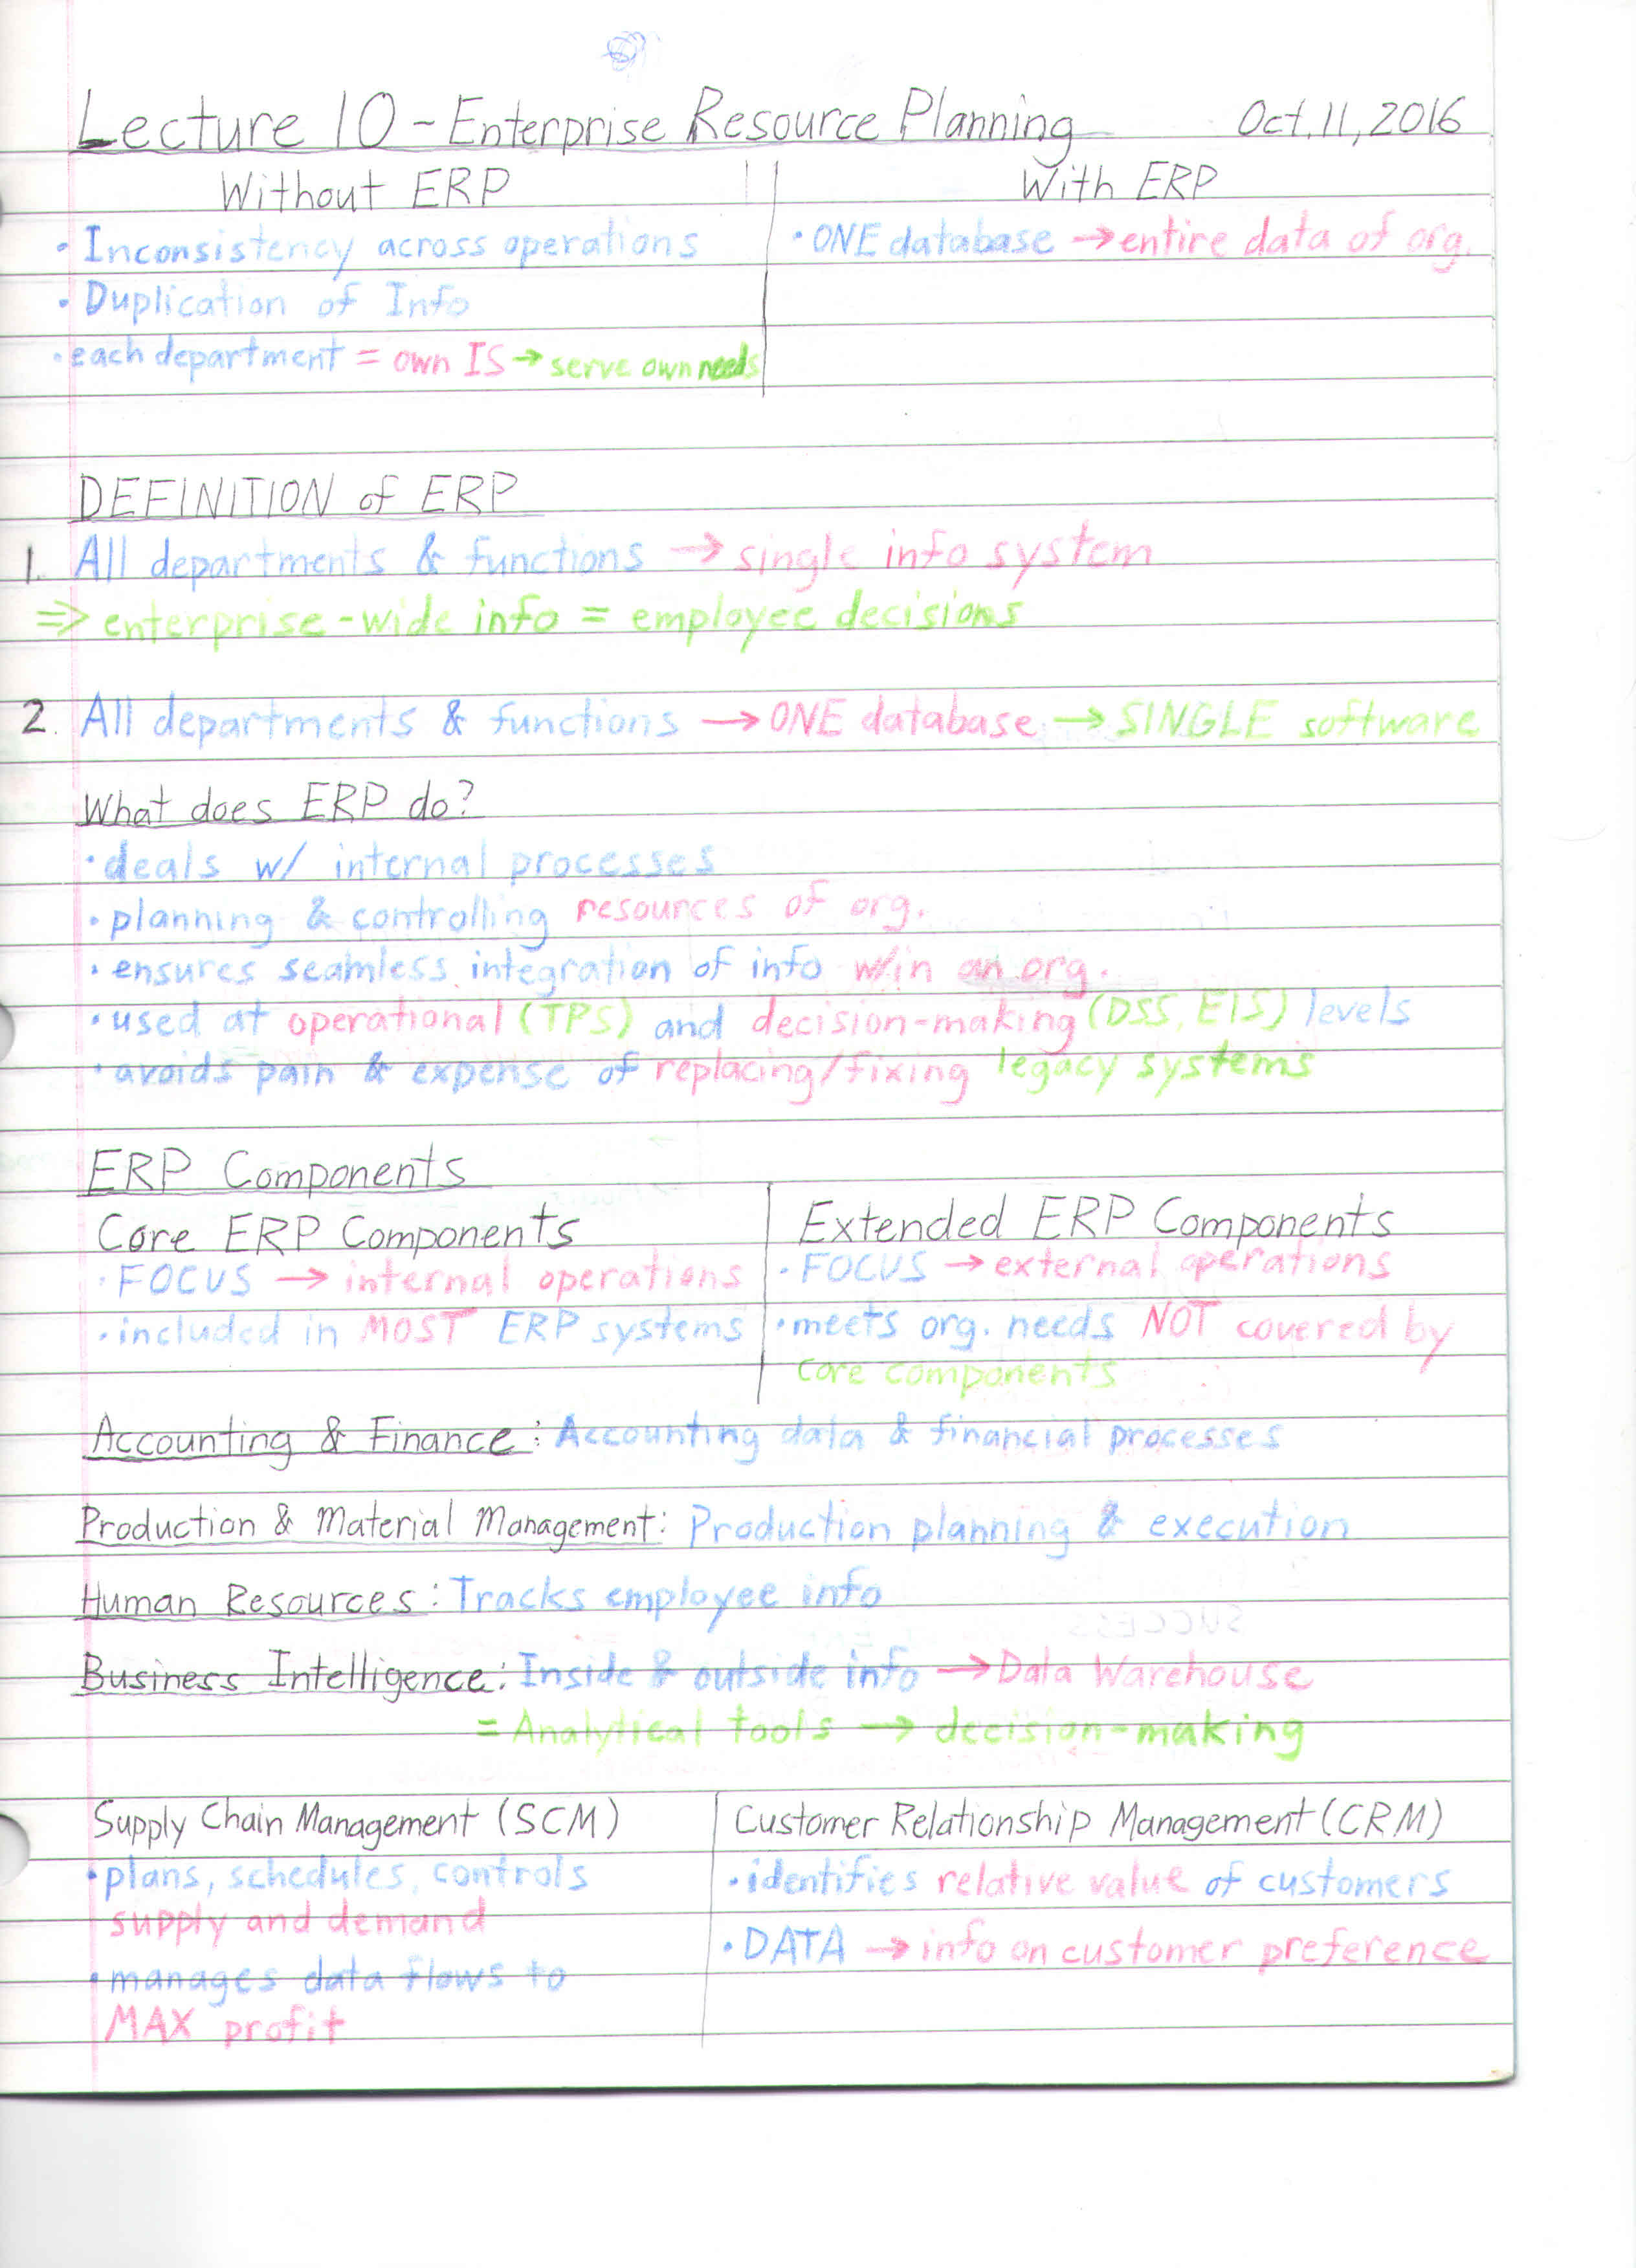 Lecture 10 - Enterprise Resource Planning Oct. 11, 2016
Without ERP
• Inconsistency across operations
• Duplication of Info
• each department = own IS → serve own needs
With ERP
• ONE database → entire data of org.
DEFINITION of ERP
1. All departments & functions → single info system
⇒ enterprise-wide info = employee decisions
2. All departments & functions → ONE database → SINGLE software
What does ERP do?
• deals w/ internal processes
• planning & controlling resources of org.
• ensures seamless integration of info w/in an org.
• used at operational (TPS) and decision-making (DSS, EIS) levels
• avoids pain & expense of replacing/fixing legacy systems
ERP Components
Core ERP Components
• FOCUS → internal operations
• included in MOST ERP systems
Extended ERP Components
• FOCUS → external operations
• meets org. needs NOT covered by
core components
Accounting & Finance: Accounting data & financial processes
Production & Material Management: Production planning & execution
Human Resources: Tracks employee info
Business Intelligence: Inside & outside info → Data Warehouse
= Analytical tools → decision-making
Supply Chain Management (SCM)
• plans, schedules, controls
supply and demand
• manages data flows to
MAX profit
Customer Relationship Management (CRM)
• identifies relative value of customers
• DATA → info on customer preference